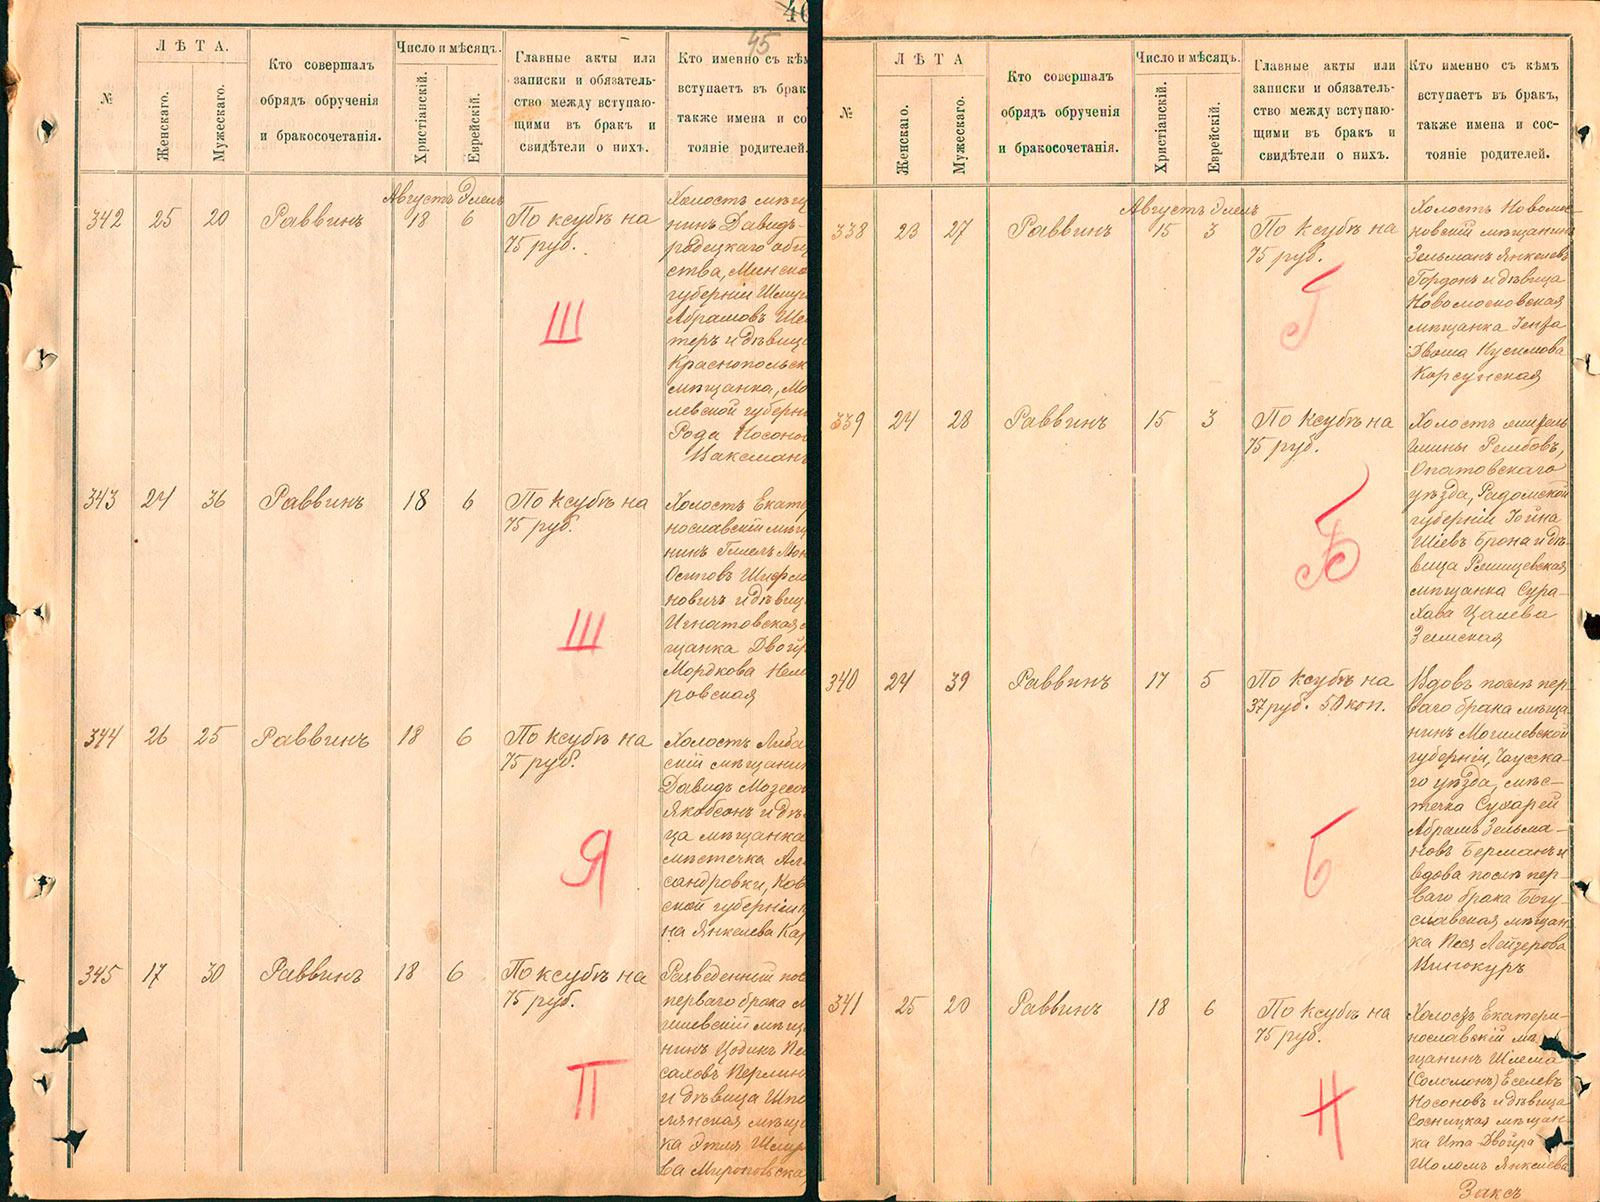 40
45
№
ЛѢТА.
Женскаго.
Мужескаго.
Кто совершалъ
обрядъ обрученія
и бракосочетанія.
Число и мѣсяцъ.
Христіанскій.
Еврейскій.
Главные акты или
записки и обязатель-
ство между вступаю-
щими въ бракъ и
свидѣтели о нихъ.
Кто именно съ кѣм
вступаетъ въ брак
также имена и со
тояніе родителей.
Августъ Элелъ
342 25 20 Раввинъ 18 6 По ксубѣ на
75 руб.
Холостъ мѣщ
нинъ Давидъ-
родецкаго общ
ства, Минско
губерніи Шмуй
Абрамовъ Ше
теръ и дѣвиц
Краснопольск
мѣщанка, Мо
левской губерн
Рода Носоно
Ваксманъ
Ш
343 24 36 Раввинъ 18 6 По ксубѣ на
75 руб.
Холостъ Екате
нославскій мѣщ
нинъ
Осиповъ
новичъ и дѣвиц
Игнатовская м
щанка Двойр
Мордкова Нем
ровская
Ш
344 26 25 Раввинъ 18 6 По ксубѣ на
75 руб.
Холостъ Либа
скій мѣщанин
Давидъ Мозесо
Якобсонъ и дѣ
ца мѣщанка
мѣстечка Ал
сандровки, Ков
ской губерніи
на Янкелева Ка
Я
345 17 30 Раввинъ 18 6 По ксубѣ на
75 руб.
Разведенный пос
перваго брака М
гилевскій мѣщ
нинъ Цодикъ Пе
саховъ Перлин
и дѣвица Шпо
лянская мѣщ
ка Этля Шмур
ва Мироповска
П
№
ЛѢТА
Женскаго.
Мужескаго.
Кто совершалъ
обрядъ обрученія
и бракосочетанія.
Число и мѣсяцъ.
Христіанскій.
Еврейскій
Главные акты или
записки и обязатель-
ство между вступаю-
щими въ бракъ и
свидѣтели о нихъ.
Кто именно съ кѣмъ
вступаетъ въ бракъ,
также имена и сос-
тояніе родителей.
Августъ Элелъ
338 23 27 Раввинъ 15 3 По ксубѣ на
75 руб.
Холостъ Новомос
ковскій мѣщанинъ
Зельманъ Янкелевъ
Гордонъ и дѣвица
Новомосковская
мѣщанка Генфа
Двоша Нусимова
Корсунская
Г
339 24 28 Раввинъ 15 3 По ксубѣ на
75 руб.
Холостъ житель
гмины Рембовъ,
Опатовскаго
уѣзда, Радомской
губерніи Іойна
Шіевъ Брона и дѣ-
вица Ржищевская
мѣщанка Сура-
Хава Цалева
Земская
Б
340 24 39 Раввинъ 17 5 По ксубѣ на
37 руб. 50 коп.
Вдовъ послѣ пер-
ваго брака мѣща
нинъ Могилевской
губерніи, Чаусска-
го уѣзда, мѣс-
течка Сухарей
Абрамъ Зельма-
новъ Берманъ и
вдова послѣ пер-
ваго брака Богу-
славская мѣщан
ка Песя Лейзерова
Винокуръ
Б
341 25 20 Раввинъ 18 6 По ксубѣ на
75 руб.
Холостъ Екатери-
нославскій мѣ
щанинъ Шлема
(Соломонъ) Еселевъ
Носоновъ и дѣвица
Сосницкая мѣщан-
ка Ита Двойра
Шоломъ Янкелева
Заксъ
Н